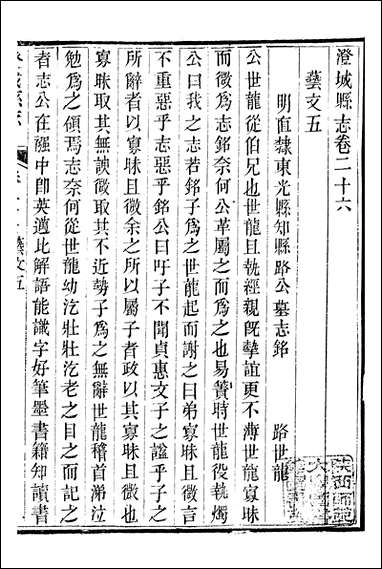 澄城縣志卷二十六
藝文五
明直隸東光縣知縣路公墓志銘　路世龍
公世龍從伯兄也世龍且執經親旣摯誼更不薄世龍寡昧
而徵爲志銘奈何公革屬之而爲之也易簀時世龍役執燭
公曰我之志若銘子爲之世龍起而謝之曰弟寡昧且徵言
不重惡乎志惡乎銘公曰吁子不聞貞惠文子之諡乎子之
所辭者以寡昧且徵余之所以屬子者政以其寡昧且微也
寡昧取其無諛微取其不近勢子爲之無辭世龍稽首涕泣
勉爲之頷焉志奈何從世龍幼迄壯壯迄老之目之而記之
者志公在襁中卽英邁比解語能識字好筆墨書籍知讀書
藝文五